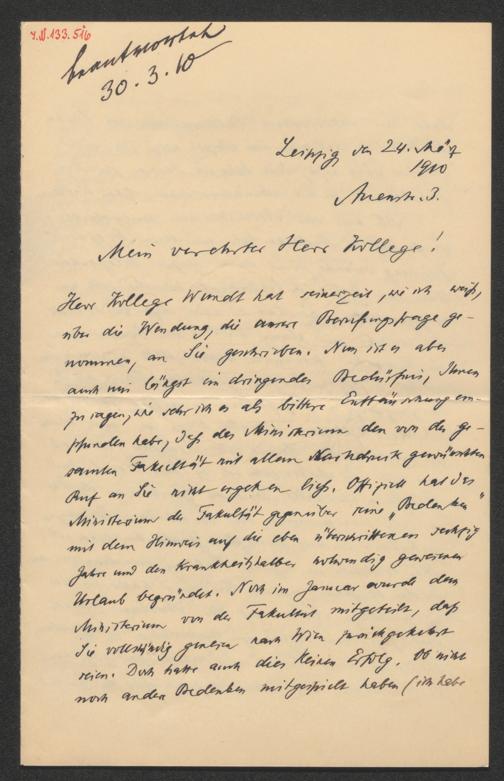 I.N. 133.516
beantwortet
30.3.10
Leipzig den 24. März
1910
Auenstr. 3.
Mein verehrter Herr Kollege!
Herr Kollege Wundt hat seinerzeit, wie ich weiß,
über die Wendung, die unsere Berufungsfrage ge-
nommen, an Sie geschrieben. Nun ist es aber
auch mir längst ein dringendes Bedürfnis, Ihnen
zu sagen, wie sehr ich es als bittere Enttäuschung em-
pfunden habe, daß das Ministerium den von der ge-
samten Fakultät mit allem Nachdruck gewünschten
Ruf an Sie nicht ergehen ließ. Offiziell hat das
Ministerium der Fakultät gegenüber seine „Bedenken"
mit dem Hinweis auf die eben überschrittenen sechzig
Jahre und den krankheitshalber notwendig gewesenen
Urlaub begründet. Noch im Januar wurde dem
Ministerium von der Fakultät mitgeteilt, daß
Sie vollständig genesen nach Wien zurückgekehrt
seien. Doch hatte auch dies keinen Erfolg. Ob nicht
noch andere Bedenken mitgespielt haben (ich habe